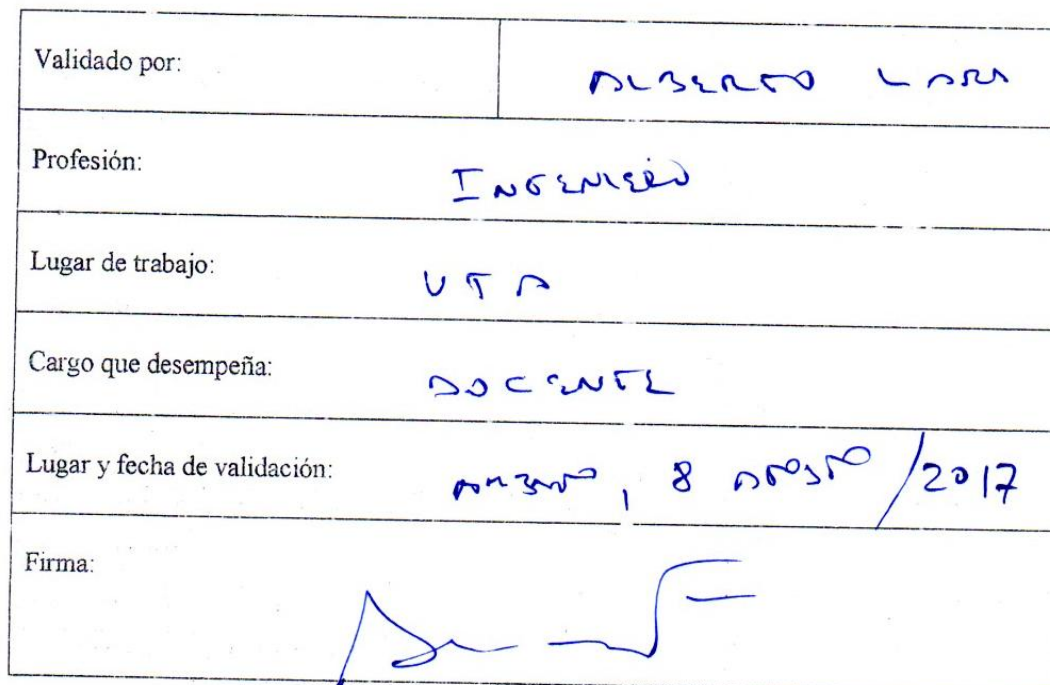 Validado por: ALBERTO LARA
Profesión: INGENIERO
Lugar de trabajo: UTA
Cargo que desempeña: DOCENTE
Lugar y fecha de validación: AMBATO, 8 AGOSTO /2017
Firma: